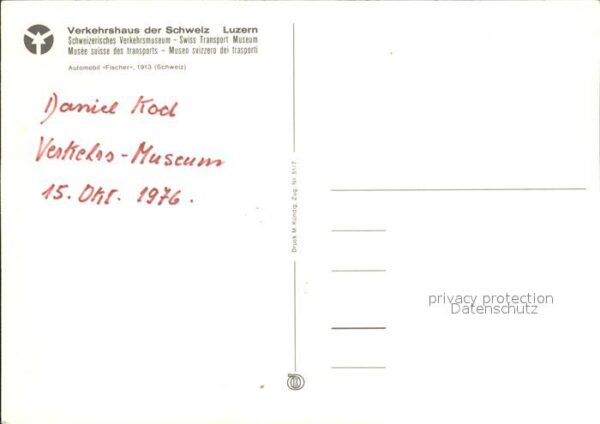 Verkehrshaus der Schweiz Luzern
Schweizerisches Verkehrsmuseum - Swiss Transport Museum
Musée suisse des transports - Museo svizzero dei trasporti
Automobil «Fischer», 1913 (Schweiz)
Daniel Kod
Verkehrs-Museum
15. Okt. 1976.
Druck M. Kündig, Zug, Nr. 51/7
privacy protection
Datenschutz